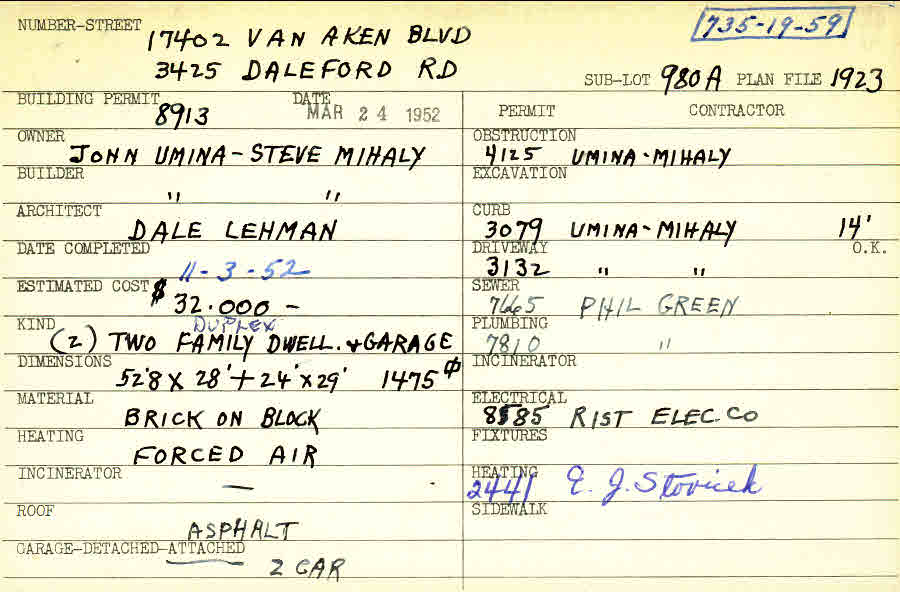 NUMBER-STREET 17402 VAN AKEN BLVD
735-19-59
3425 DALEFORD RD
SUB-LOT 980A PLAN FILE 1923
BUILDING PERMIT 8913 DATE MAR 24 1952
OWNER
JOHN UMINA-STEVE MIHALY
BUILDER
" "
ARCHITECT
DALE LEHMAN
DATE COMPLETED
11-3-52
ESTIMATED COST $ 32.000 —
KIND DUPLEX
(2) TWO FAMILY DWELL. & GARAGE
DIMENSIONS
52'8 X 28' + 24' X 29' 1475 ⌀
MATERIAL
BRICK ON BLOCK
HEATING
FORCED AIR
INCINERATOR
—
ROOF
ASPHALT
GARAGE-DETACHED-ATTACHED
2 CAR
PERMIT CONTRACTOR
OBSTRUCTION
4125 UMINA-MIHALY
EXCAVATION
CURB
3079 UMINA-MIHALY 14'
DRIVEWAY O.K.
3132 " "
SEWER
7665 PHIL GREEN
PLUMBING
7810 "
INCINERATOR
ELECTRICAL
8585 RIST ELEC. CO
FIXTURES
HEATING
2441 E. J. Stovicek
SIDEWALK